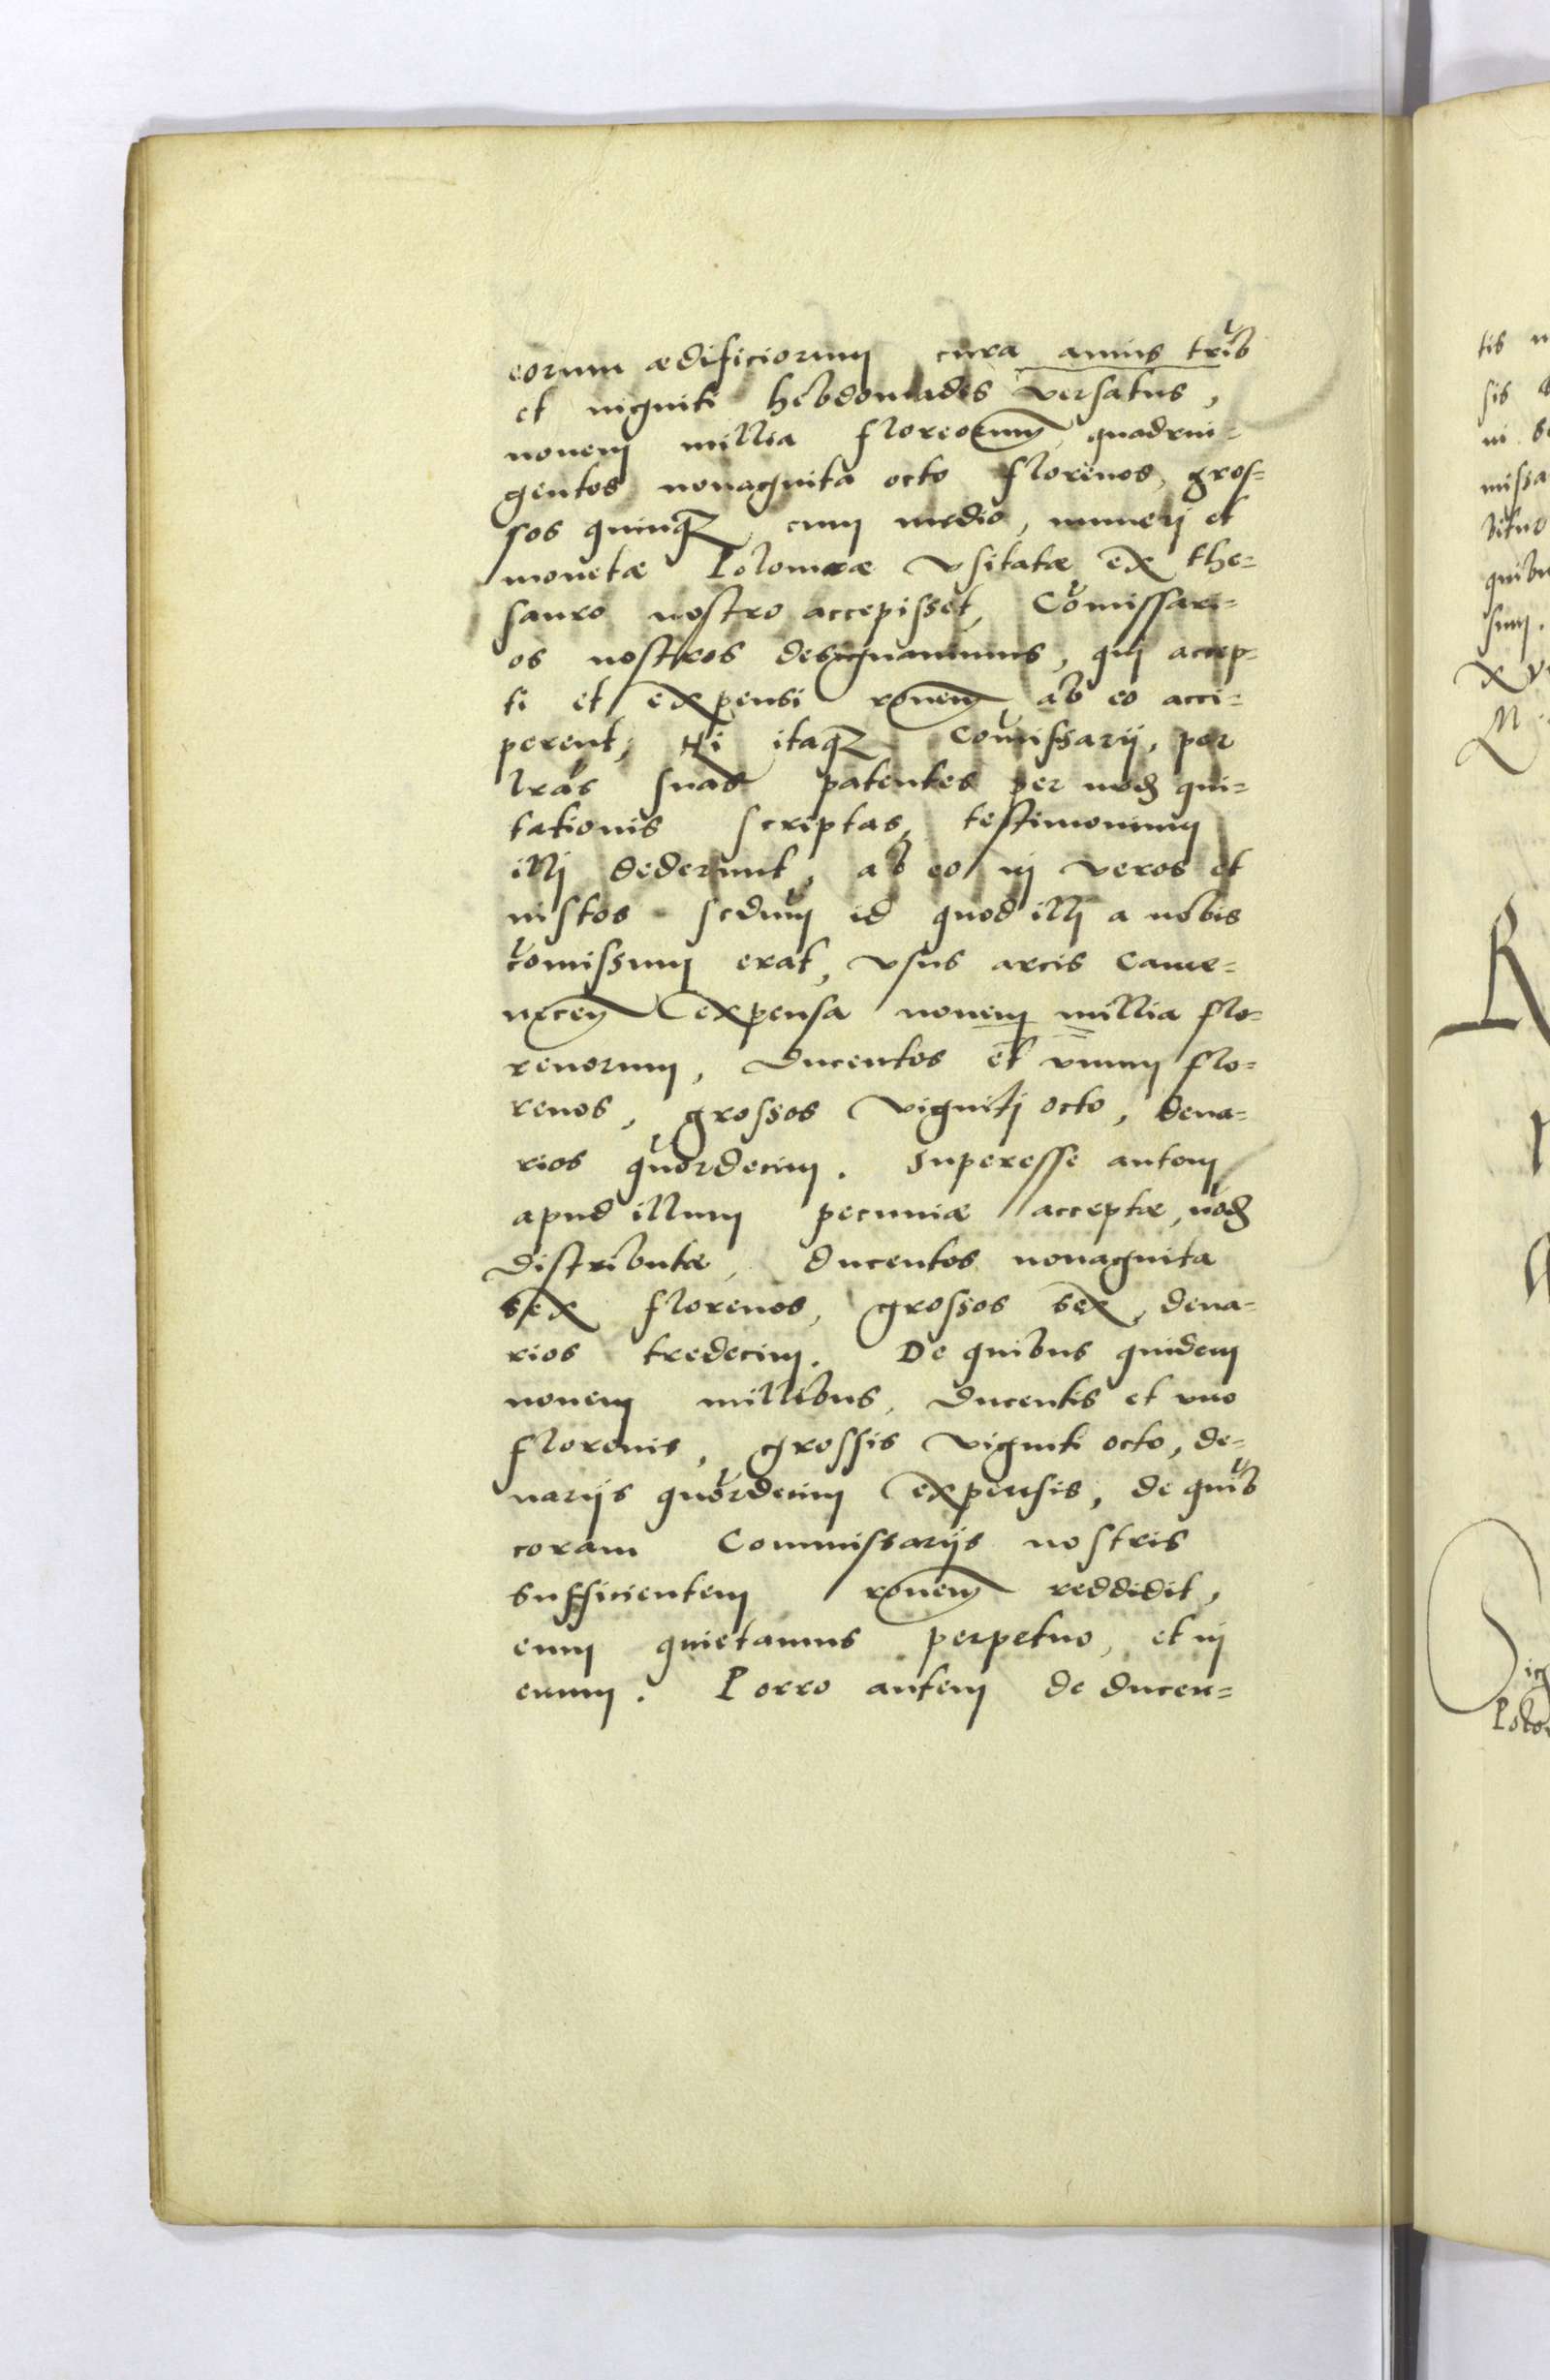 eorum ædificiorum cura annis trib
et uiginti hebdomades versatus,
nouem millia floreorum quadrin=
gentos nonaginta octo florenos, gros=
sos quinq cum medio, numeri et
monetæ Poloniæ vsitatæ ex the=
sauro nostro accepisset, Comissari=
os nostros designauimus, qui accep=
ti et expensi ronem ab eo acci=
perent, Hi itaq Comissarij, per
lras suas patentes per mod qui=
tationis scriptas, testimonium
illi dederunt, ab eo in veros et
iustos scdum id quod illi a nobis
comissum erat, vsus arcis Came=
necen expensa nouem millia flo=
renorum, ducentos et vnum flo=
renos, grossos viginti octo, dena=
rios quordecim. Superesse autem
apud illum pecuniæ acceptæ, nod
distributæ, ducentos nonaginta
sex florenos, grossos sex, dena=
rios tredecim. De quibus quidem
nouem millibus, ducentis et vno
florenis, grossis viginti octo, de=
narijs quordecim expensis, de quib
coram Commissarijs nostris
sufficientem ronem reddidit,
eum quietamus perpetuo, et in
euum. Porro autem de ducen=
tis
sis
missa
quibu
sum.
R